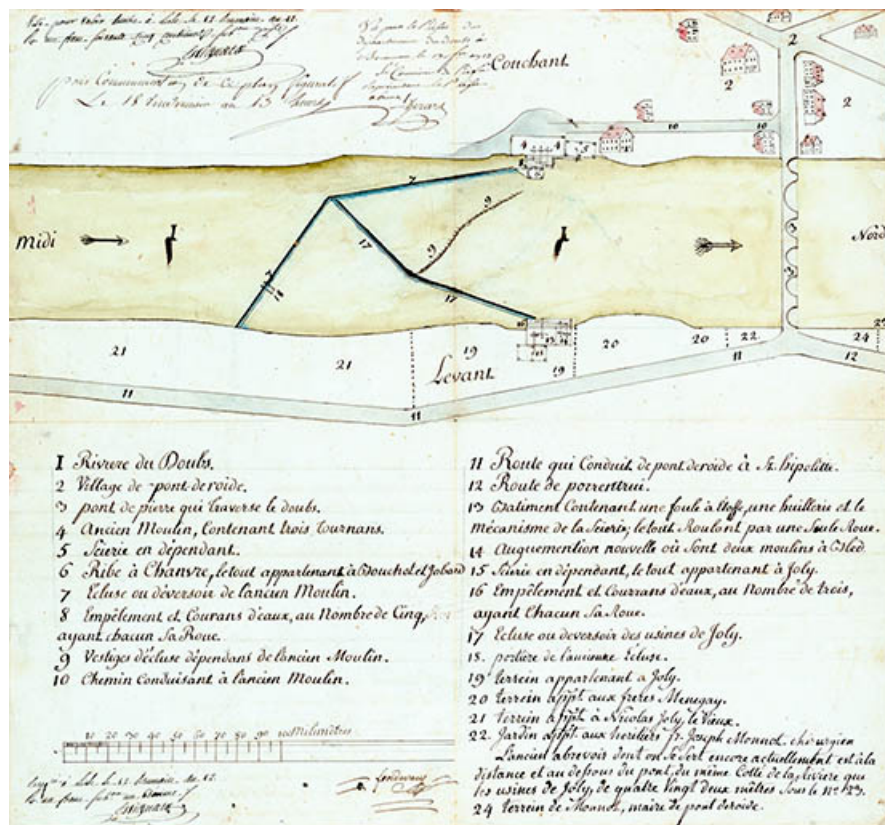 Couchant
Midi
Nord
Levant
1 Riviere du Doubs.
2 Village de pont de roide.
3 pont de pierre qui traverse le doubs.
4 Ancien Moulin, Contenant trois tournans.
5 Scierie en dépendant.
6 Ribe à Chanvre, le tout appartenant à Bouchot et Jobard
7 Ecluse ou déversoir de l'ancien Moulin.
8 Empêlement et Courans d'eaux, au Nombre de Cinq,
ayant chacun Sa Roue.
9 Vestiges d'écluse dépendans de l'ancien Moulin.
10 Chemin Conduisant à l'ancien Moulin.
10 20 30 40 50 60 70 80 90 100 Milimètres
11 Route qui Conduit de pont de roide à St. hipolitte.
12 Route de porrentrui.
13 Batiment Contenant une foule à Etoffe, une huillerie et le
mécanisme de la Scierie; le tout Roulant par une Seule Roue.
14 Auquemention nouvelle où Sont deux moulins à bled.
15 Scierie en dépendant, le tout appartenant à Joly.
16 Empêlement et Courrans d'eaux, au Nombre de trois,
ayant Chacun Sa Roue.
17 Ecluse ou deversoir des usines de Joly.
18. portière de l'ancienne Ecluse.
19 terrein appartenant a Joly.
20 terrein appt aux freres Menegay.
21 terrein appt à Nicolas Joly le Vieux.
22. Jardin appt aux heritiers fr. Joseph Monnot, chirurgien
L'ancien abrevoir dont on Se Sert encore actuellement est à la
distance et au dessous du pont, du même Cotté de la riviere que
les usines de Joly, de quatre Vingt deux mètres Sous le No. 23.
24 terrein de Monnot, maire de pont de roide.